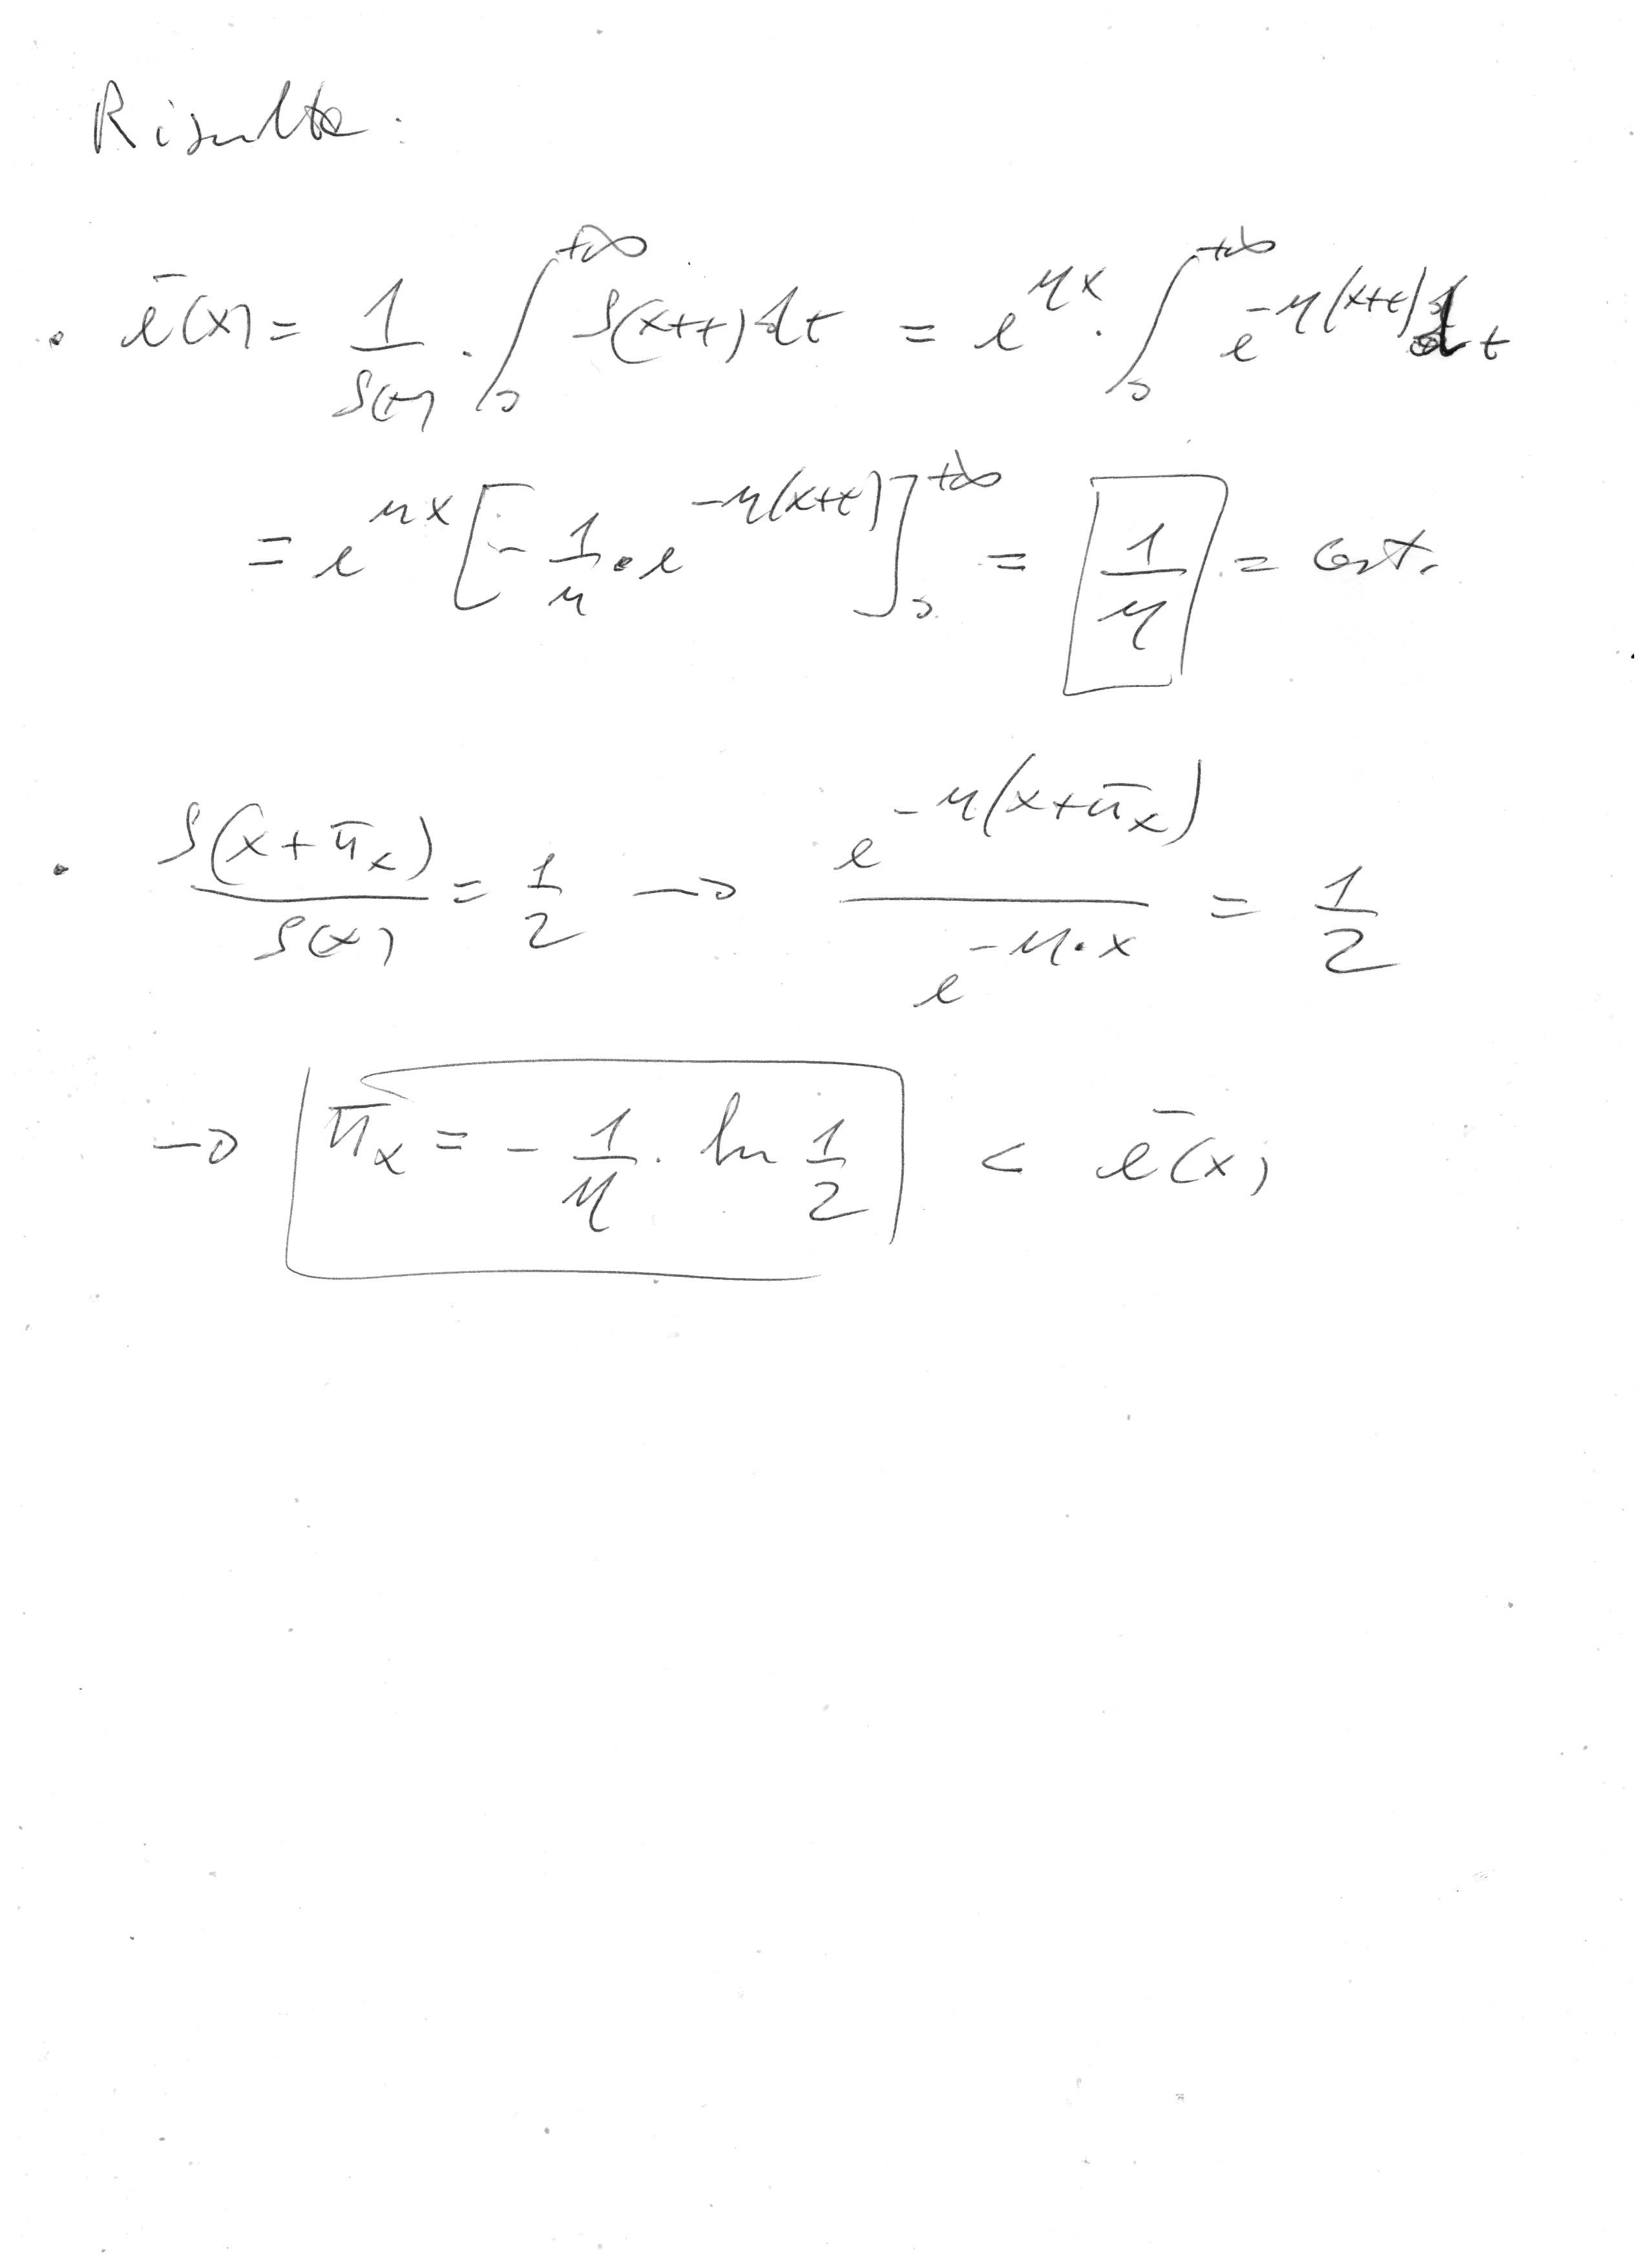 Risulta:
• ē(x) = 1/S(x) · ∫₀^{+∞} S(x+t) dt = e^{μx} · ∫₀^{+∞} e^{-μ(x+t)} dt
= e^{μx} [ - 1/μ · e^{-μ(x+t)} ]₀^{+∞} = 1/μ = cost.
• S(x+π̄ₓ)/S(x) = 1/2 → e^{-μ(x+π̄ₓ)}/e^{-μ·x} = 1/2
→ π̄ₓ = - 1/μ · ln 1/2 < ē(x)